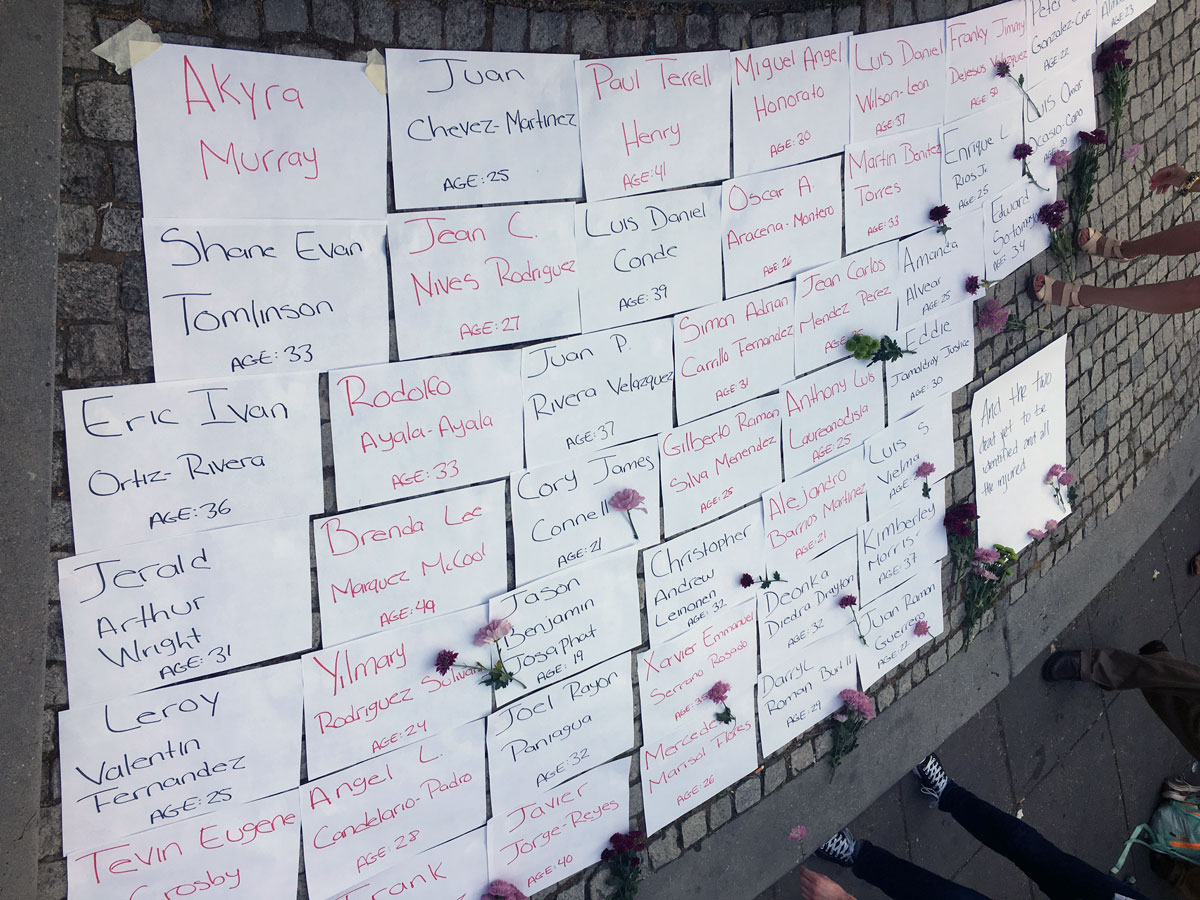 Akyra
Murray
Juan
Chevez-Martinez
AGE: 25
Paul Terrell
Henry
AGE: 41
Miguel Angel
Honorato
AGE: 30
Luis Daniel
Wilson-Leon
AGE: 37
Franky Jimmy
Dejesus Velazquez
AGE: 50
Peter
Gonzalez-Cruz
AGE: 22
AGE: 23
Shane Evan
Tomlinson
AGE: 33
Jean C.
Nives Rodriguez
AGE: 27
Luis Daniel
Conde
AGE: 39
Oscar A
Aracena-Montero
AGE: 26
Martin Benitez
Torres
AGE: 33
Enrique L
Rios Jr.
AGE: 25
Luis Omar
Ocasio-Capo
Eric Ivan
Ortiz-Rivera
AGE: 36
Rodolfo
Ayala-Ayala
AGE: 33
Juan P.
Rivera Velazquez
AGE: 37
Simon Adrian
Carrillo Fernandez
AGE: 31
Jean Carlos
Mendez Perez
Amanda
Alvear
AGE: 25
Edward
AGE: 34
Jerald
Arthur
Wright
AGE: 31
Brenda Lee
Marquez McCool
AGE: 49
Cory James
Connell
AGE: 21
Gilberto Ramon
Silva Menendez
AGE: 25
Anthony Luis
Laureanodisla
AGE: 25
Eddie
Jamoldroy Justice
AGE: 30
Leroy
Valentin
Fernandez
AGE: 25
Yilmary
Rodriguez
AGE: 24
Jason
Benjamin
Josaphat
AGE: 19
Christopher
Andrew
Leinonen
AGE: 32
Alejandro
Barrios Martinez
AGE: 21
Luis S
Vielma
And the two
yet to be
identified and all
the injured
Tevin Eugene
Crosby
Angel L.
Candelario-Padro
AGE: 28
Joel Rayon
Paniagua
AGE: 32
Xavier Emmanuel
Serrano Rosado
AGE: 35
Deonka
Diedra Drayton
AGE: 32
Kimberley
Morris
AGE: 37
Frank
Javier
Jorge-Reyes
AGE: 40
Mercedes
Marisol Flores
AGE: 26
Darryl
Roman Burt II
AGE: 29
Juan Ramon
Guerrero
AGE: 22